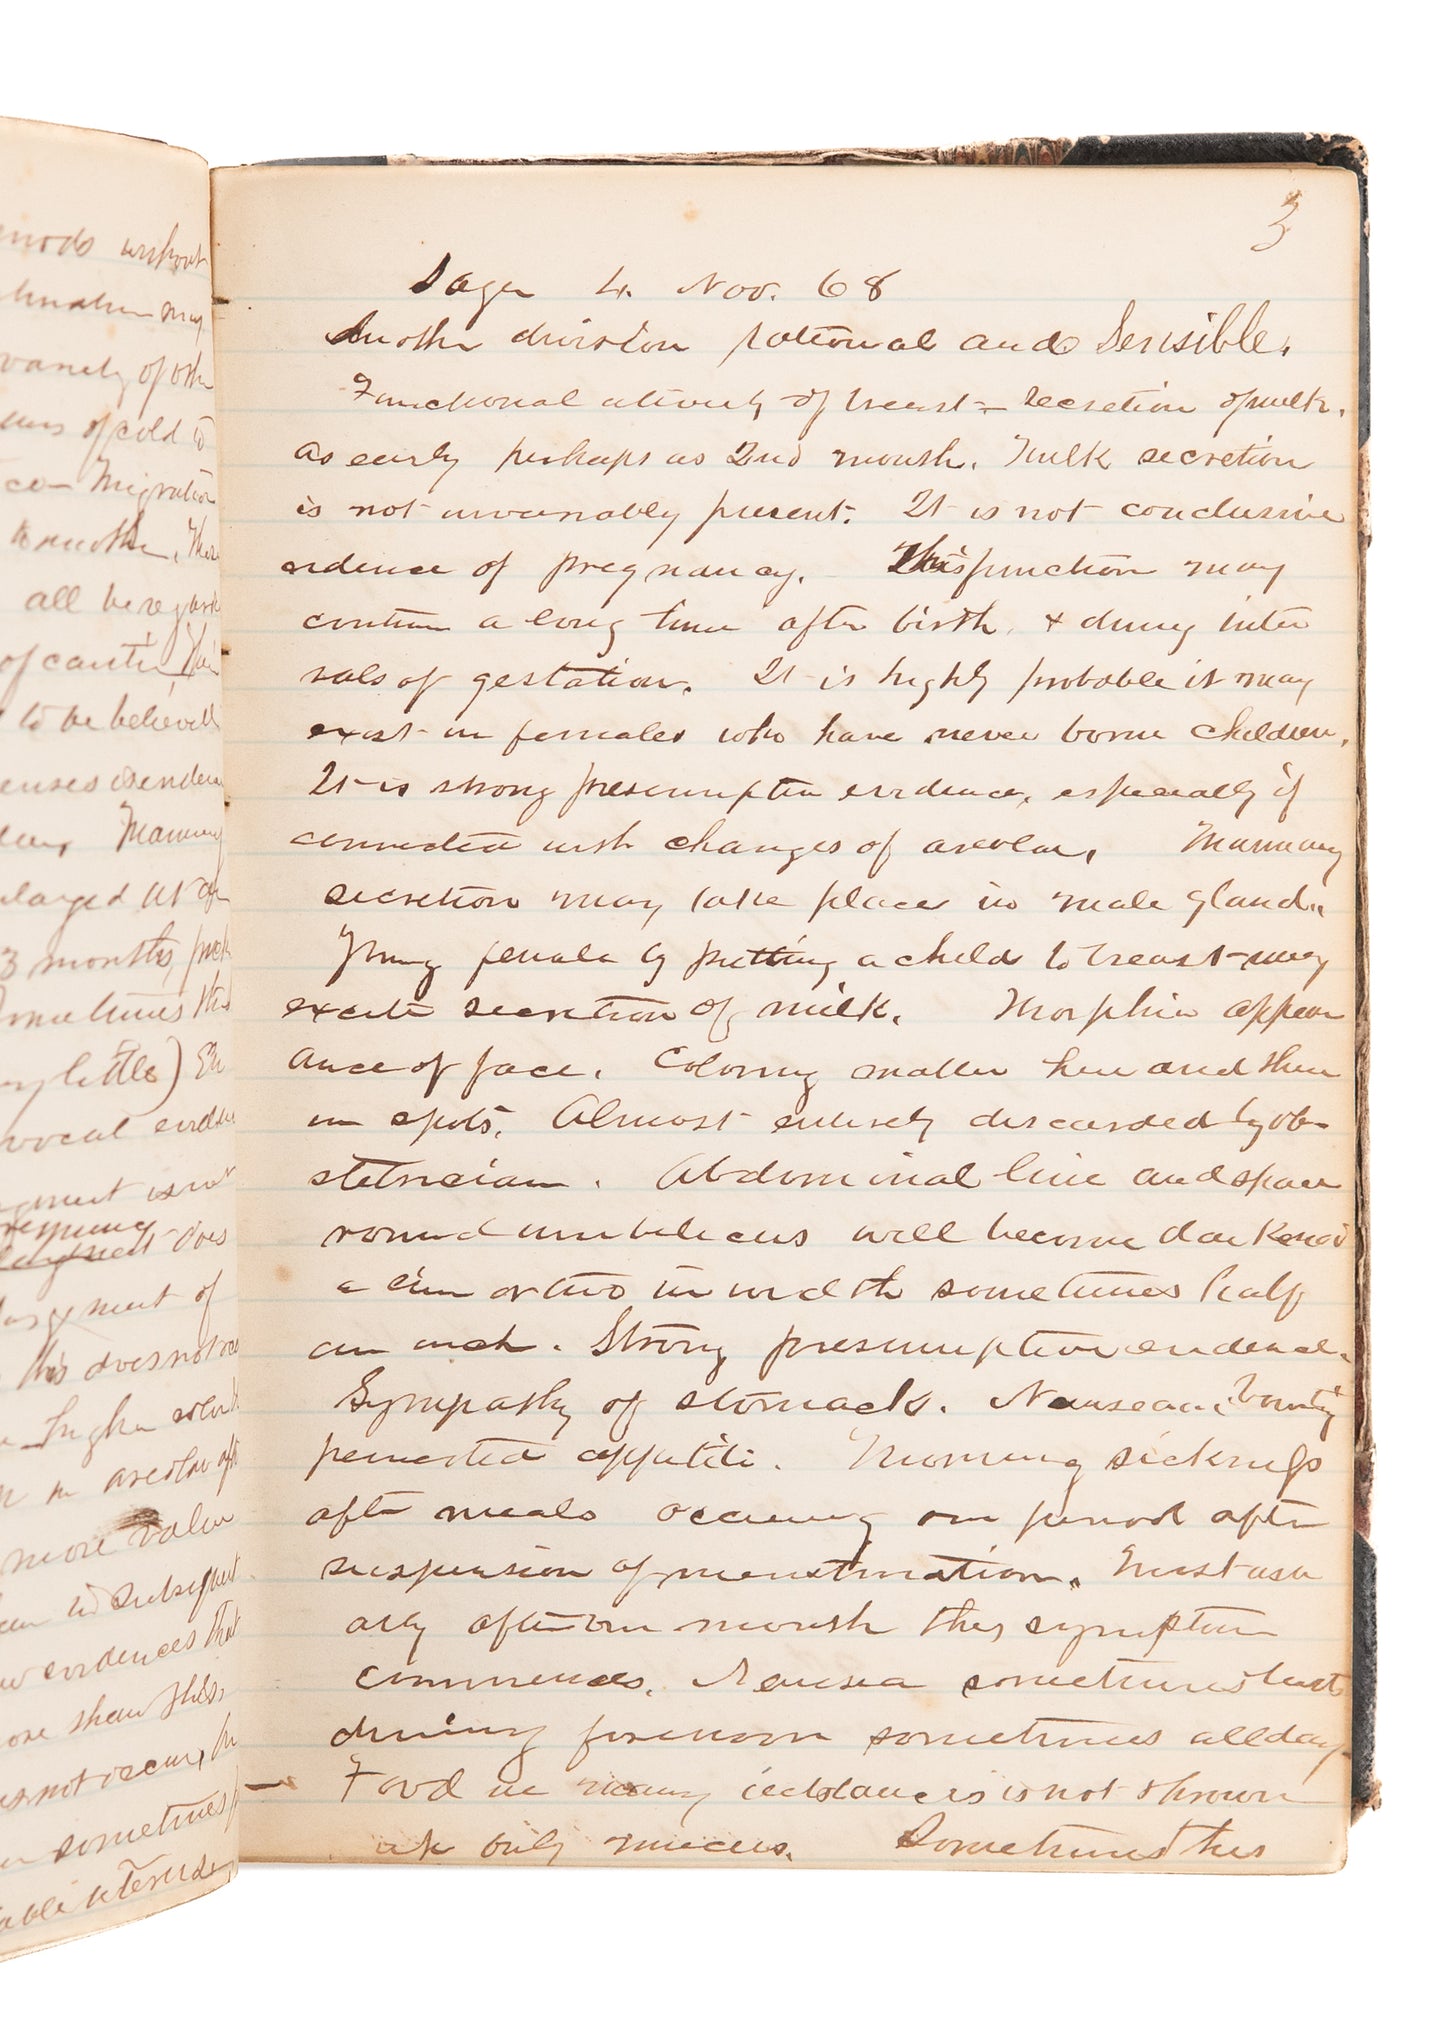 modes without
may
variety of other
of cold to
Migration
to another. These
all be regard
of caution
to be believed
Mammary
enlarged at
3 months
sometimes this
very little)
does
enlargement of
this does not
in areolar
more value
in subsequent
evidences that
more than this
does not occur,
sometimes
3
Sager 4. Nov. 68
Another division rational and Sensible.
Functional activity of breast – secretion of milk.
as early perhaps as 2nd month. Milk secretion
is not invariably present. It is not conclusive
evidence of pregnancy. This function may
continue a long time after birth, & during inter
vals of gestation. It is highly probable it may
exist in females who have never borne children.
It is strong presumptive evidence, especially if
connected with changes of areolar. Mammary
secretion may take place in male gland.
Young female by putting a child to breast may
excite secretion of milk. Morphin appear
ance of face. Coloring matter here and there
in spots. Almost entirely discarded by ob-
stetrician. Abdominal line and space
round umbilicus will become darkened
a line or two in width sometimes half
an inch. Strong presumptive evidence.
Sympathy of stomach. Nausea Vomiting
perverted appetite. Morning sickness
after meals occurring one period after
suspension of menstruation. Most usu
ally after one month this symptom
commences. Nausea sometimes lasts
during forenoon sometimes all day
Food in many instances is not thrown
up only mucus. Sometimes this